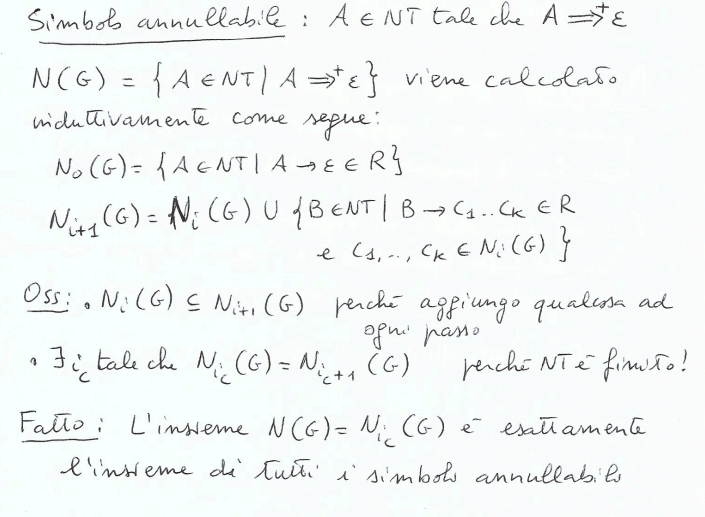 Simboli annullabile : A ∈ NT tale che A ⇒⁺ ε
N(G) = { A ∈ NT | A ⇒⁺ ε } viene calcolato
induttivamente come segue:
N₀(G) = { A ∈ NT | A → ε ∈ R }
Nᵢ₊₁(G) = Nᵢ(G) ∪ { B ∈ NT | B → C₁..Cₖ ∈ R
e C₁,..,Cₖ ∈ Nᵢ(G) }
Oss: • Nᵢ(G) ⊆ Nᵢ₊₁(G) perché aggiungo qualcosa ad
ogni passo
• ∃ i_c tale che N_{i_c}(G) = N_{i_c+1}(G) perché NT è finito!
Fatto : L'insieme N(G) = N_{i_c}(G) è esattamente
l'insieme di tutti i simboli annullabili